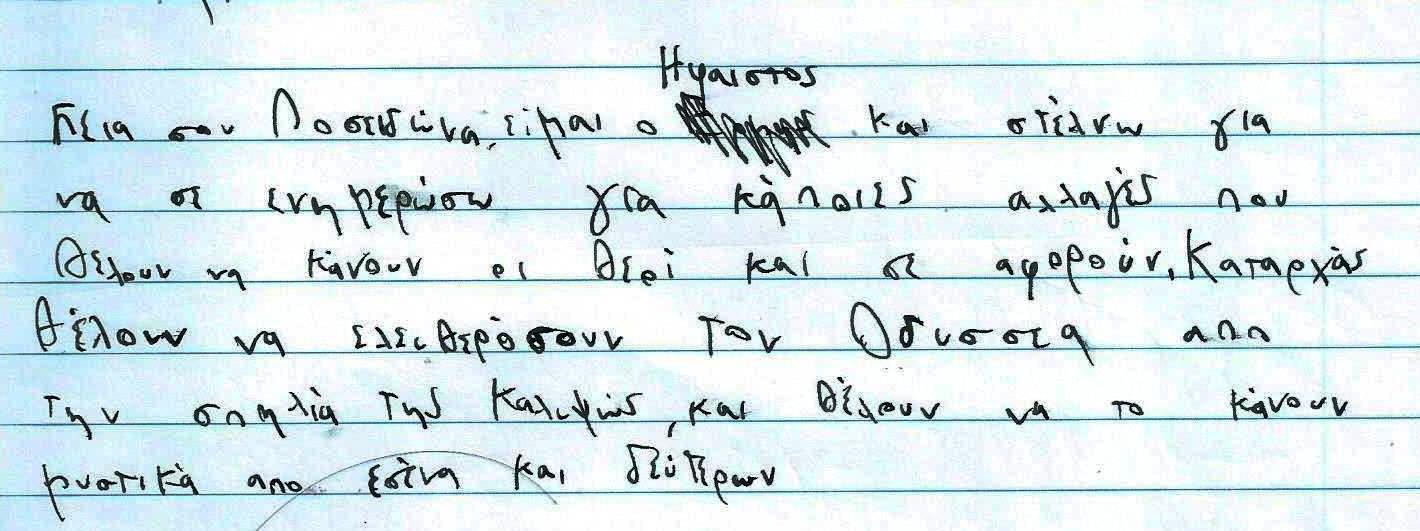 Ηφαιστος
Γεια σου Ποσειδώνα, είμαι ο και στέλνω για
να σε ενημερώσω για κάποιες αλλαγές που
θέλουν να κάνουν οι θεοί και σε αφορούν. Καταρχάς
θέλουν να ελευθερόσουν τον Οδυσσεα απο
την σπηλιά της Καλυψώς, και θέλουν να το κάνουν
μυστικά απο εσένα και δεύτερων